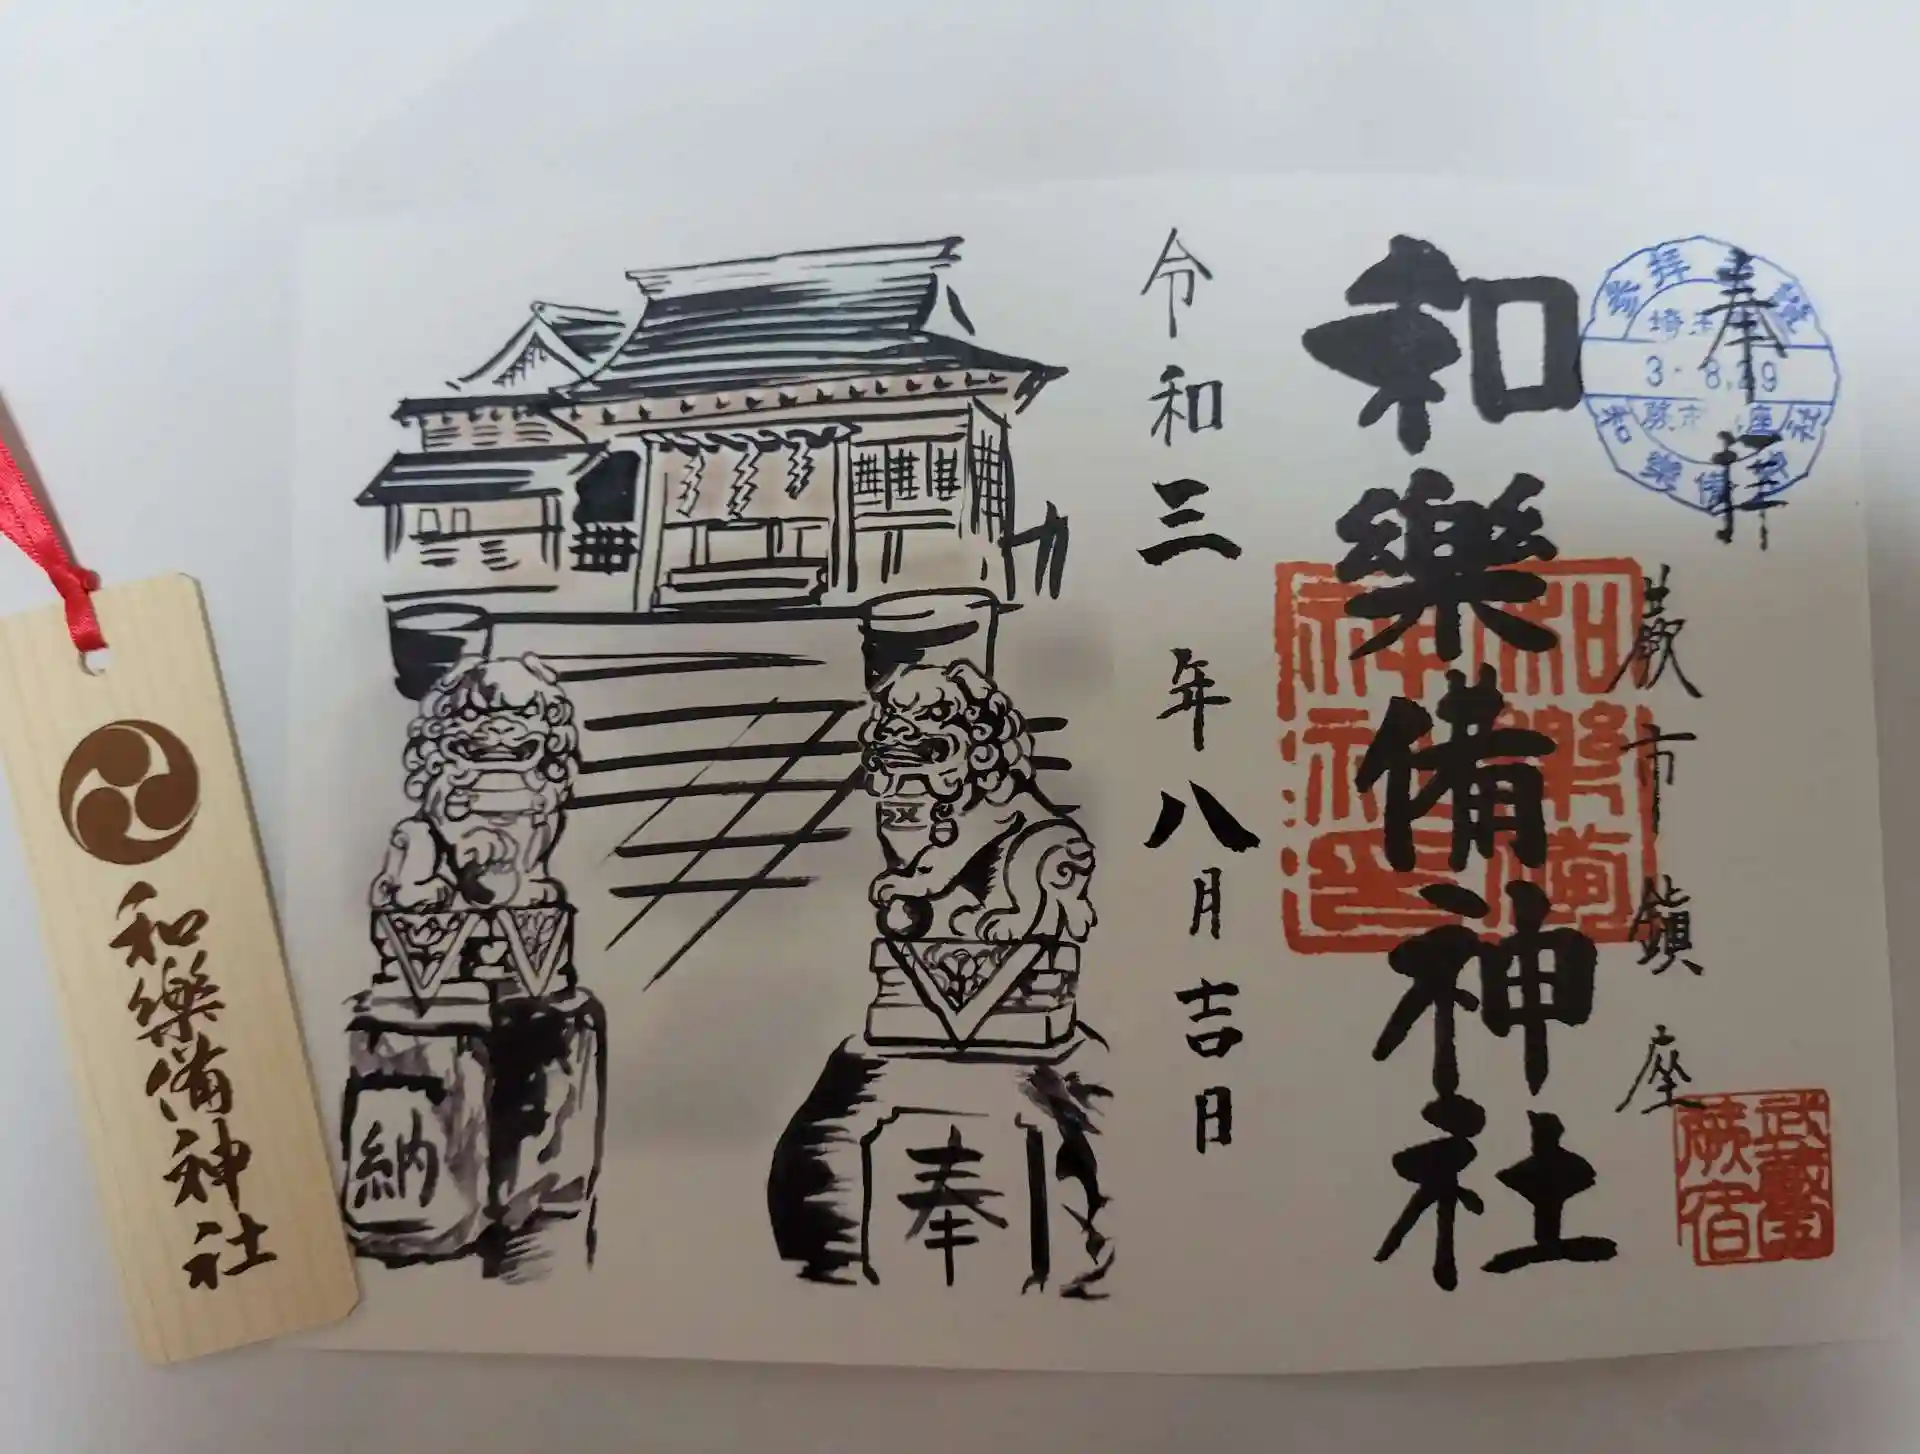 奉拝
参拝記念
3. 8.29
和樂備神社
蕨市鎮座
和樂備神社
和樂備神社印
武蔵国蕨宿
令和三年八月吉日
奉
納
和樂備神社